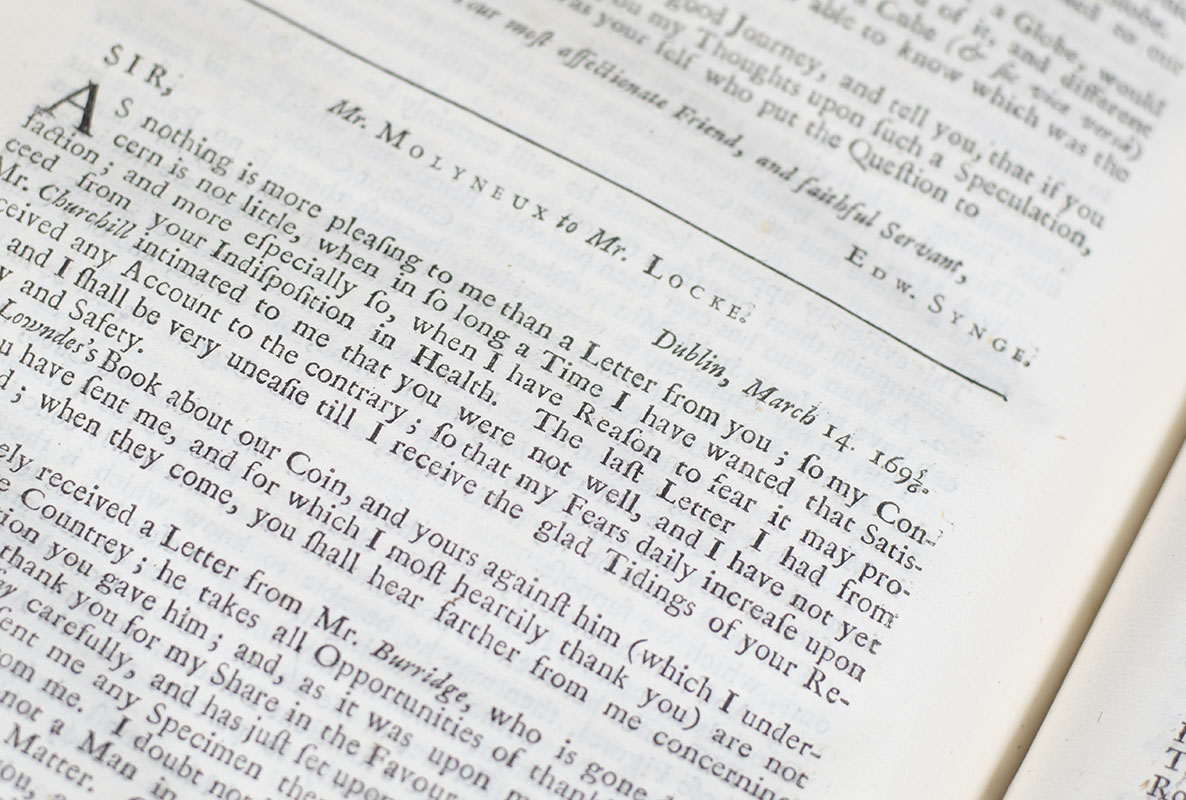 a Globe, would
of it, and different
a Cube (& sic vice versâ)
able to know which was the
good Journey, and tell you, that if you
you my Thoughts upon ſuch a Speculation,
was your ſelf who put the Queſtion to
your moſt affectionate Friend, and faithful Servant,
EDW. SYNGE.
Mr. MOLYNEUX to Mr. LOCKE.
SIR,
Dublin, March 14. 169 5/6.
AS nothing is more pleaſing to me than a Letter from you ; ſo my Con-
cern is not little, when in ſo long a Time I have wanted that Satis-
faction ; and more eſpecially ſo, when I have Reaſon to fear it may pro-
ceed from your Indiſpoſition in Health. The laſt Letter I had from
Mr. Churchill intimated to me that you were not well, and I have not yet
ceived any Account to the contrary ; ſo that my Fears daily increaſe upon
and I ſhall be very uneaſie till I receive the glad Tidings of your Re-
and Safety.
Lowndes's Book about our Coin, and yours againſt him (which I under-
have ſent me, and for which I moſt heartily thank you) are not
; when they come, you ſhall hear farther from me concerning
received a Letter from Mr. Burridge, who is gone
Countrey ; he takes all Opportunities of
you gave him ; and, as it was upon
thank you for my Share in the Favour
carefully, and has juſt ſet upon
me any Specimen
me. I doubt not
not a Man in
Matter.